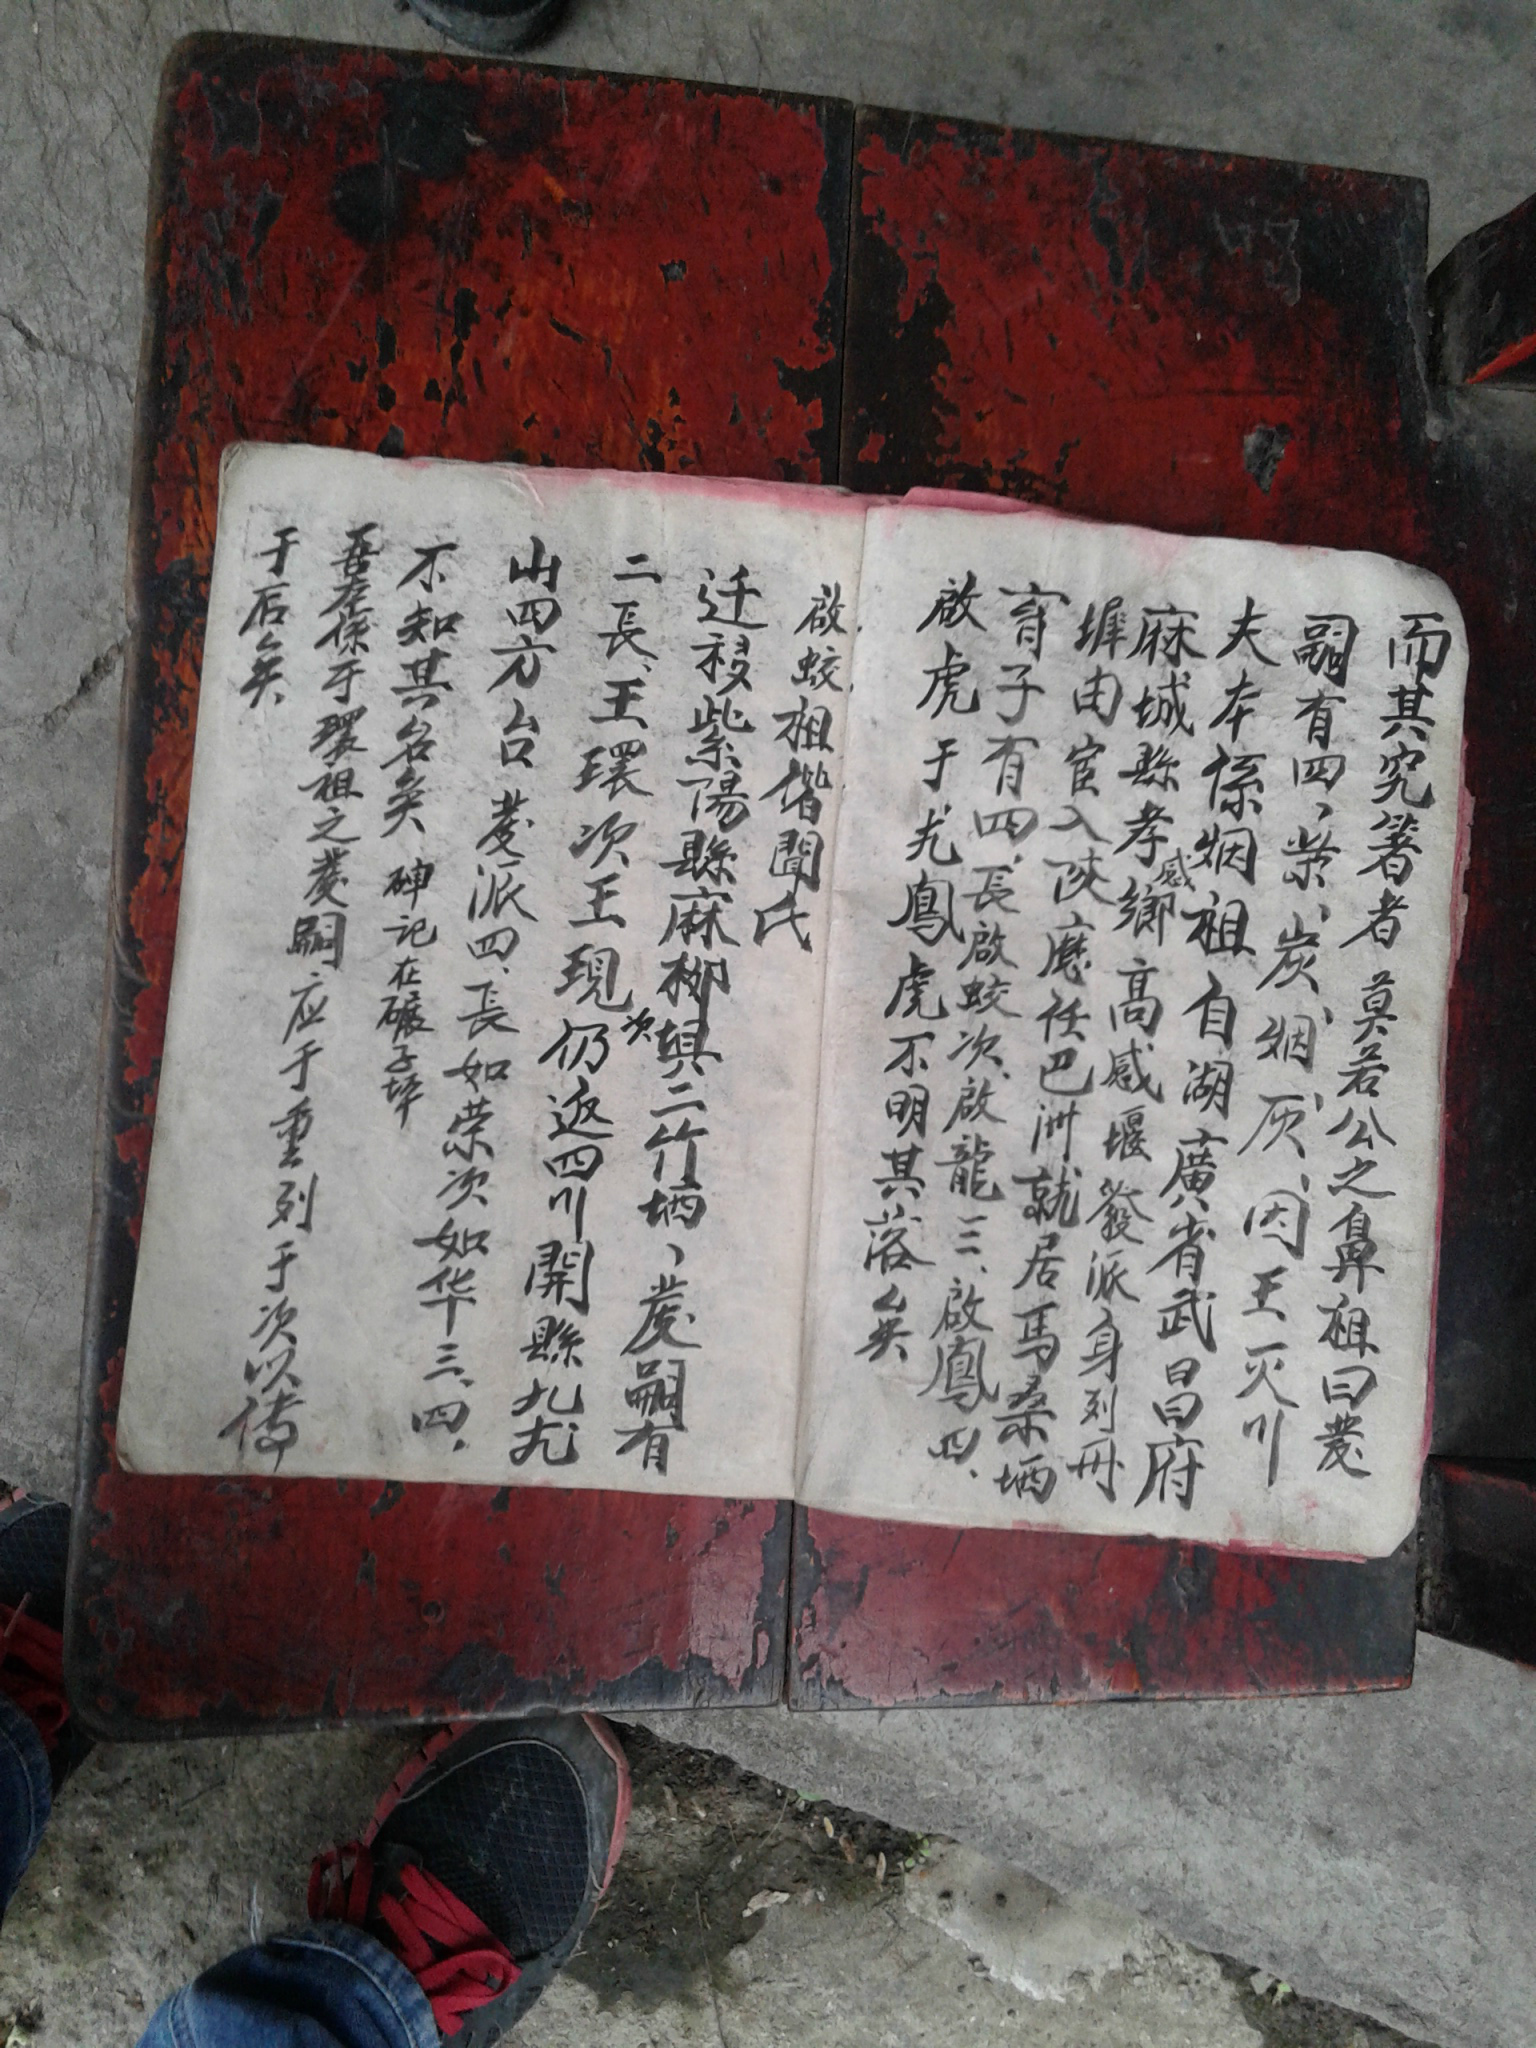 而其究着者莫若公之鼻祖曰發
嗣有四、紫、炭、烟、灰、因王灭川
夫本係烟祖自湖廣省武昌府
麻城縣孝感鄉高感堰發派身列冊
墀由宦入陝應任巴洲就居馬桑垇
育子有四、長啟蛟次、啟龍三、啟鳳四、
啟虎于尤鳳虎不明其落矣
啟蛟祖偕聞氏
迁移紫陽縣麻柳垻二竹垇、發嗣有
二長、王環次王現次仍返四川開縣九尤
山四方台發派四、長如荣次如华三、四、
不知其名矣、碑记在碾子坪
吾本係于環祖之發嗣应于重列于次以传
于后矣